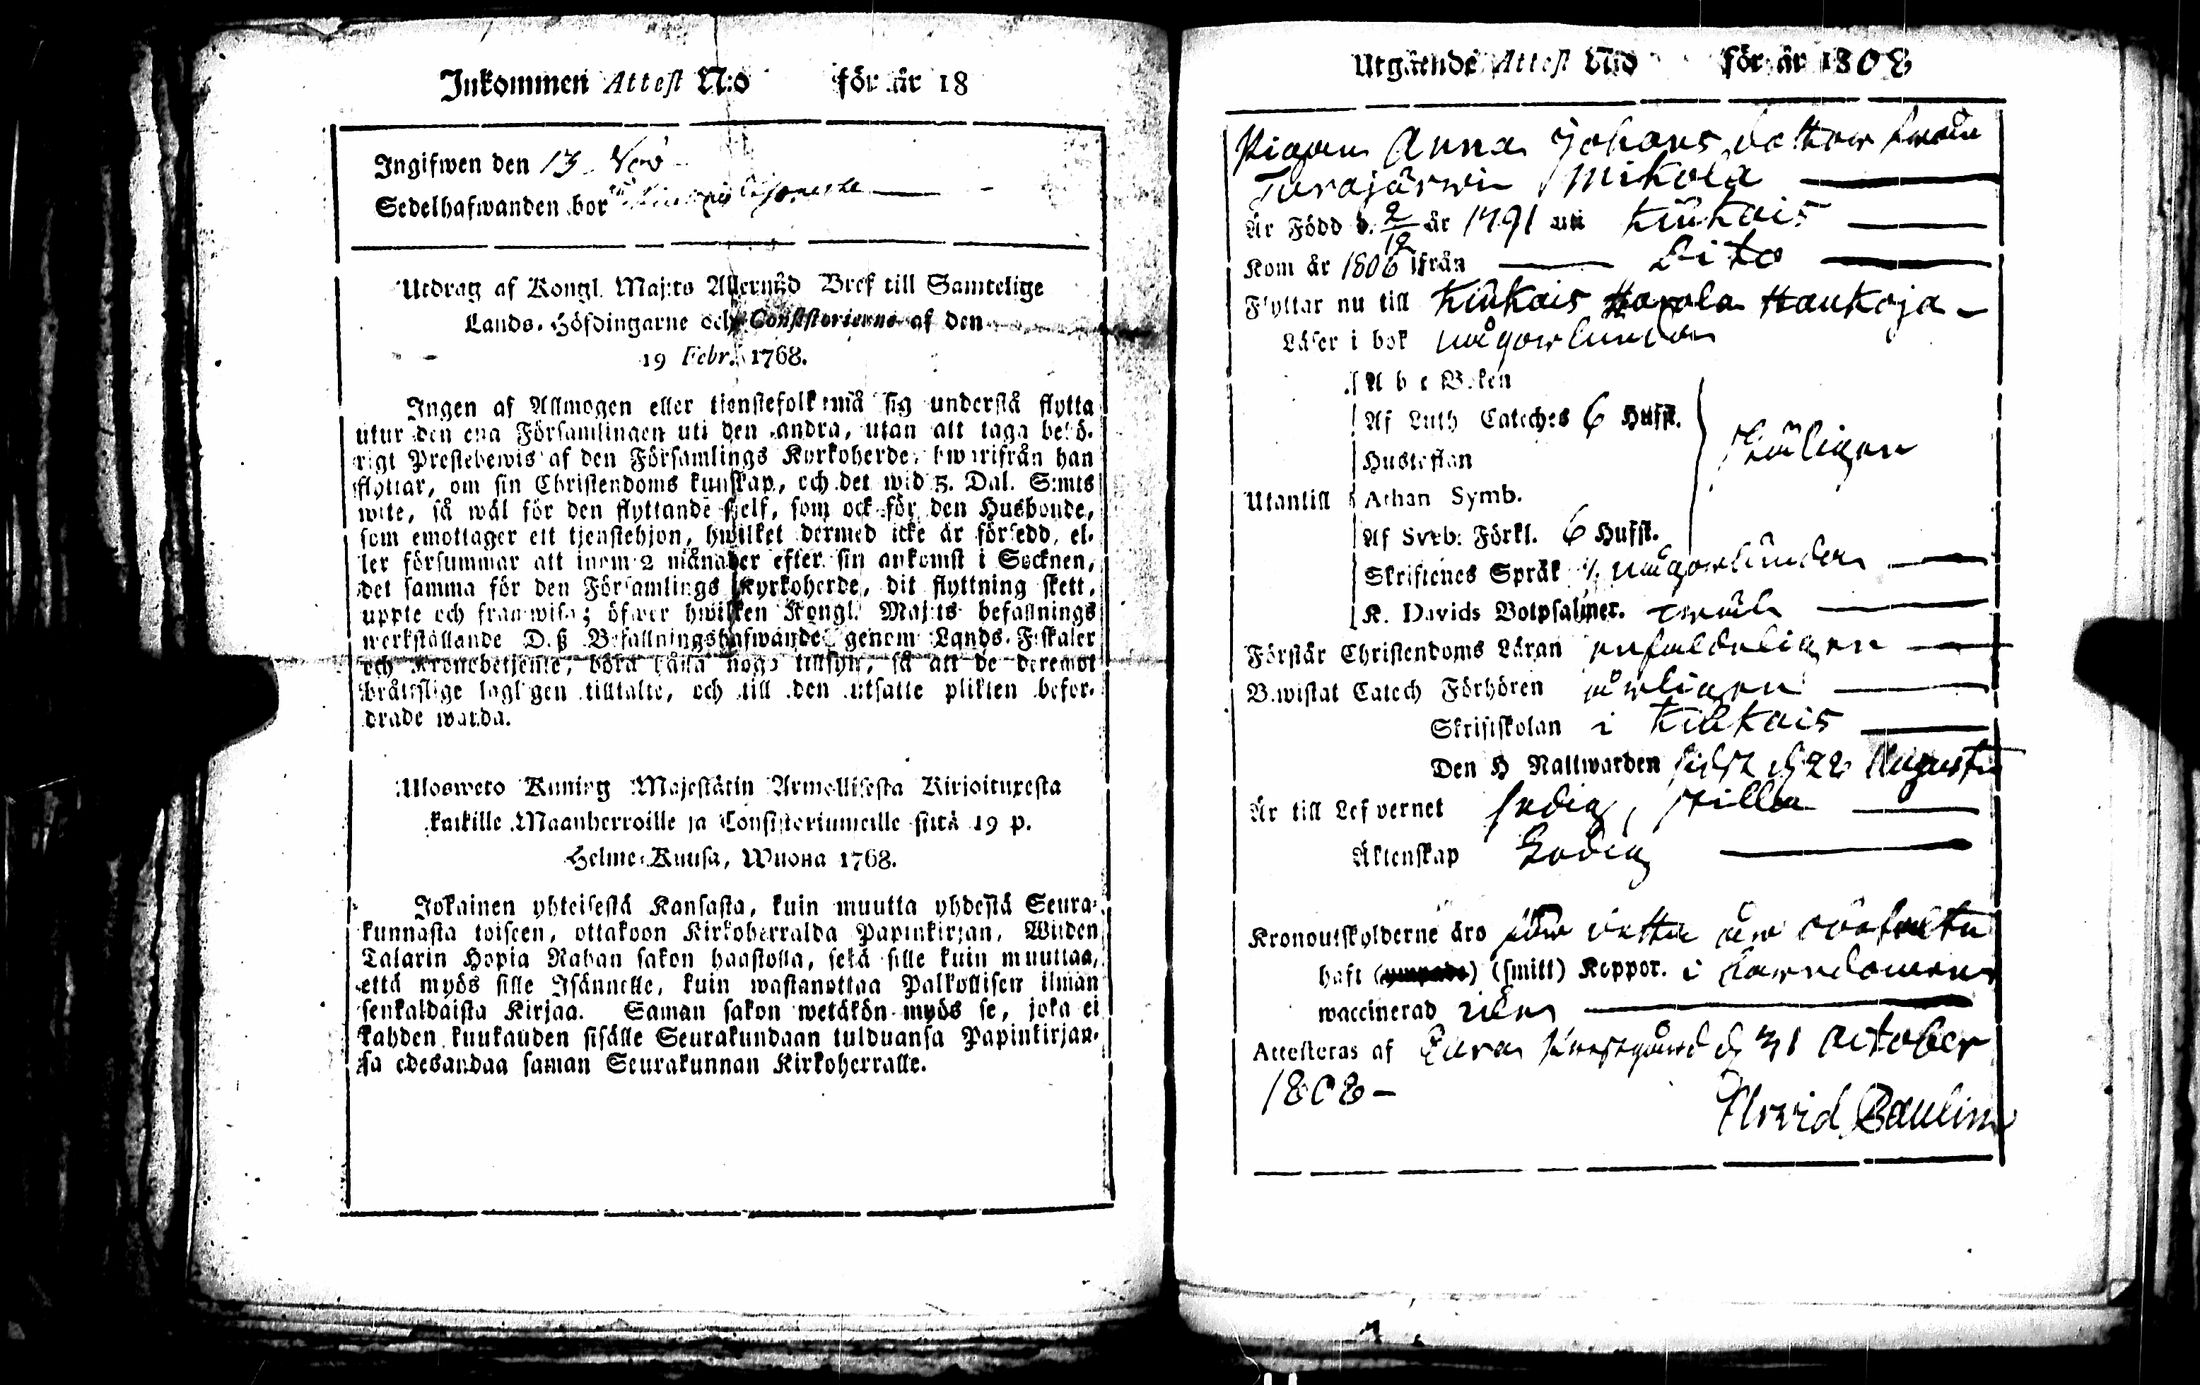 Inkommen Attest N:o för år 18
Ingifwen den 13 Nov
Sedelhafwanden bor
Utdrag af Kongl. Maj:ts Allernåd Bref till Samtelige
Lands-Höfdingarne och Consistorierne af den
19 Febr. 1768.
Ingen af Allmogen eller tienstefolk må sig understå flytta
utur den ena Församlingen uti den andra, utan att taga behö-
rigt Prestebewis af den Församlings Kyrkoherde, hwarifrån han
flyttar, om sin Christendoms kunskap, och det wid 5. Dal. S:mts
wite, så wäl för den flyttande sjelf, som ock för den Husbonde,
som emottager ett tjenstehjon, hwilket dermed icke är försedd, el-
ler försummar att inom 2 månader efter sin ankomst i Socknen,
det samma för den Församlings Kyrkoherde, dit flyttning skett,
uppte och framwisa; öfwer hwilken Kongl. Maj:ts befallnings
werkställande D. ß Befallningshafwande genom Lands-Fiskaler
och Kronobetjente, böra hålla noga tillsyn, så att de deremot
bråttslige lagligen tilltalte, och till den utsatte plikten befor-
drade warda.
Ulosweto Kuning Majestätin Armollisesta Kirjoituxesta
kaikille Maanherroille ja Consistoriumeille siitä 19 p.
Helme-Kuusa, Wuona 1768.
Jokainen yhteisestä Kansasta, kuin muutta yhdestä Seura-
kunnasta toiseen, ottakoon Kirkoherralda Papinkirjan, Wiiden
Talarin Hopia Rahan sakon haastolla, sekä sille kuin muuttaa,
että myös sille Isännelle, kuin wastanottaa Palkollisen ilman
senkaldaista Kirjaa. Saman sakon wetäkön myös se, joka ei
kahden kuukauden sisälle Seurakundaan tulduansa Papinkirjan-
sa edesandaa saman Seurakunnan Kirkoherralle.
Utgående Attest N:o för år 1808
Pigan Anna Johans dotter från
Turajärwi Mikola
Är Född d. 2/12 år 1791 uti Kiukais
Kom år 1806 ifrån Dito
Flyttar nu till Kiukais Harola Haukoja
Läser i bok någorlunda
A b c Boken
Af Luth Cateches 6 Hufst.
Hustaflan
skäligen
Utantill Athan Symb.
Af Sveb: Förkl. 6 Hufst.
Skriftenes Språk någorlunda
K. Davids Botpsalmer.
Förstår Christendoms Läran enfaldeligen
Bewistat Catech Förhören årligen
Skriftskolan i Kiukais
Den H Nattwarden sidst d 22 Augusti
Är till Lefvernet sedig, stilla
Äktenskap Ledig
Kronoutskylderne äro för detta år
haft (ympade) (smitt) Koppor. i barndomen
waccinerad
Attesteras af Eura Prestgård d 31 October
1808
Arvid Paulin